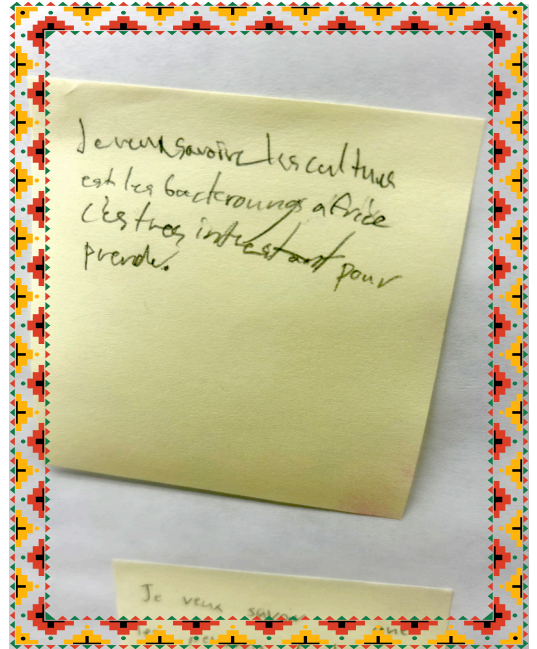 Je veux savoire les cultures
est les backrounds africe
c'es tres intrestant pour
prende.
Je veux savoir